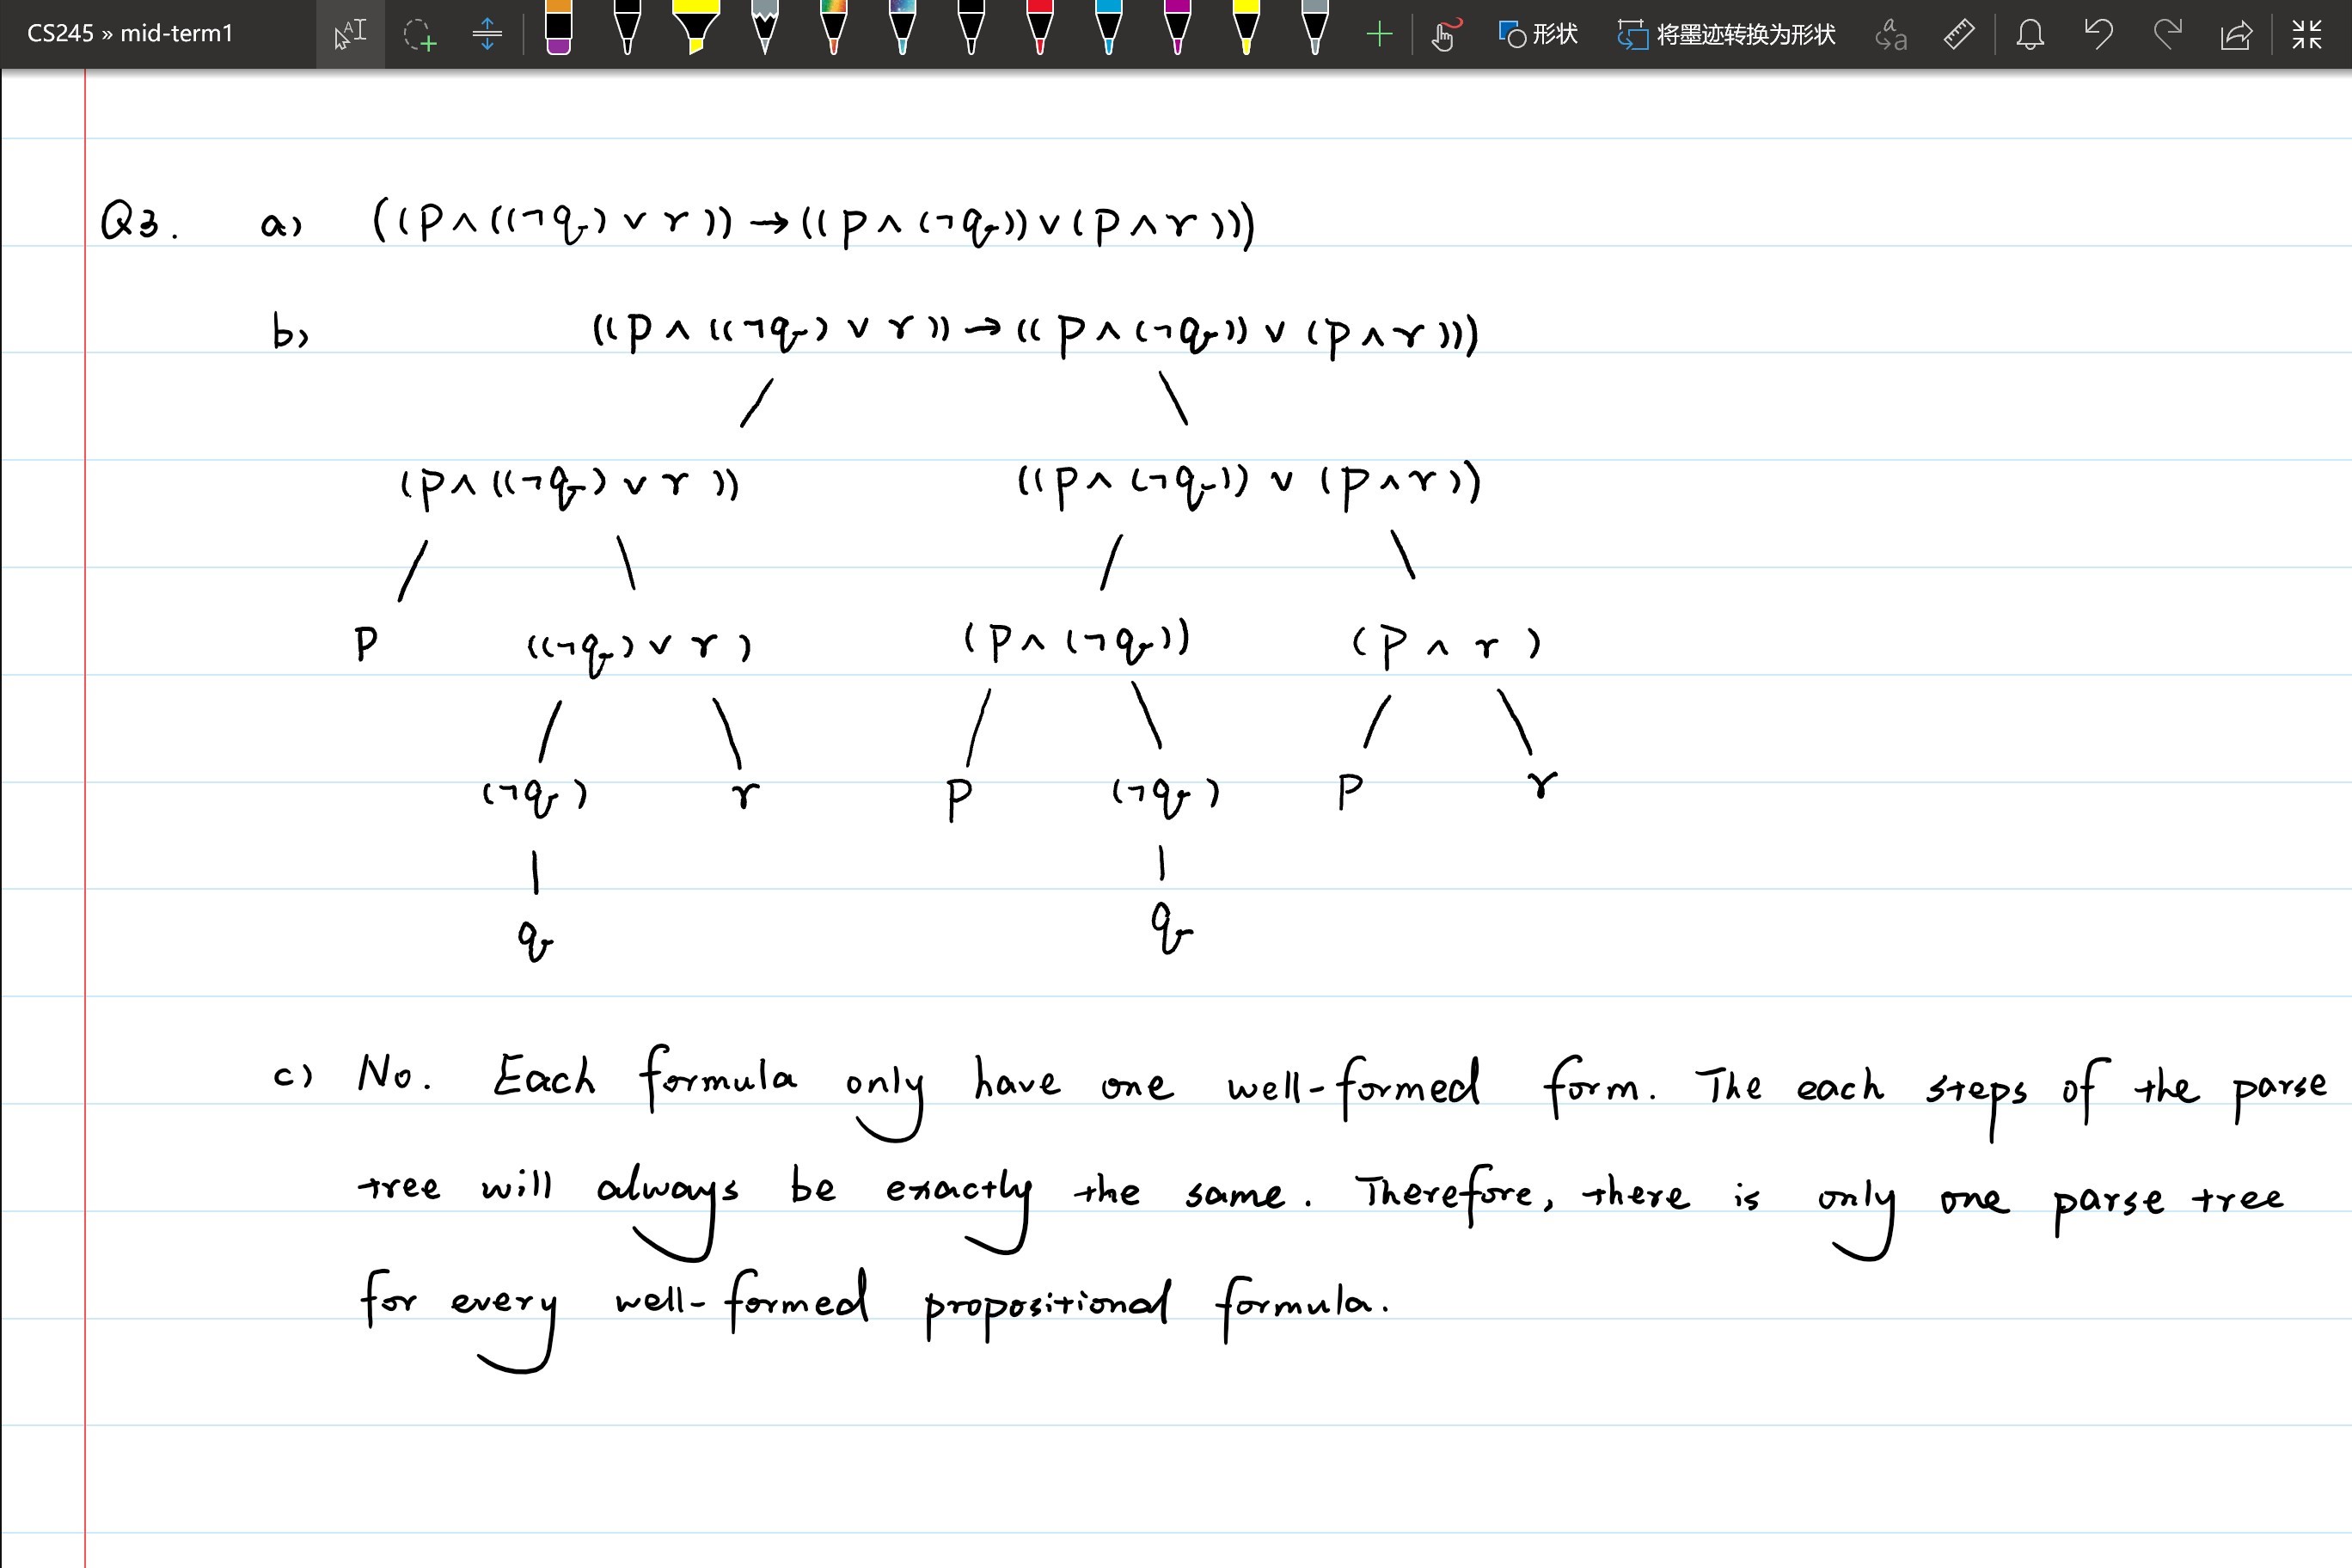 CS245 » mid-term1
形状
将墨迹转换为形状
Q3. a) ((p∧((¬q)∨r))→((p∧(¬q))∨(p∧r)))
b) ((p∧((¬q)∨r))→((p∧(¬q))∨(p∧r)))
(p∧((¬q)∨r)) ((p∧(¬q))∨(p∧r))
p ((¬q)∨r) (p∧(¬q)) (p∧r)
(¬q) r p (¬q) p r
q q
c) No. Each formula only have one well-formed form. The each steps of the parse
tree will always be exactly the same. Therefore, there is only one parse tree
for every well-formed propositional formula.